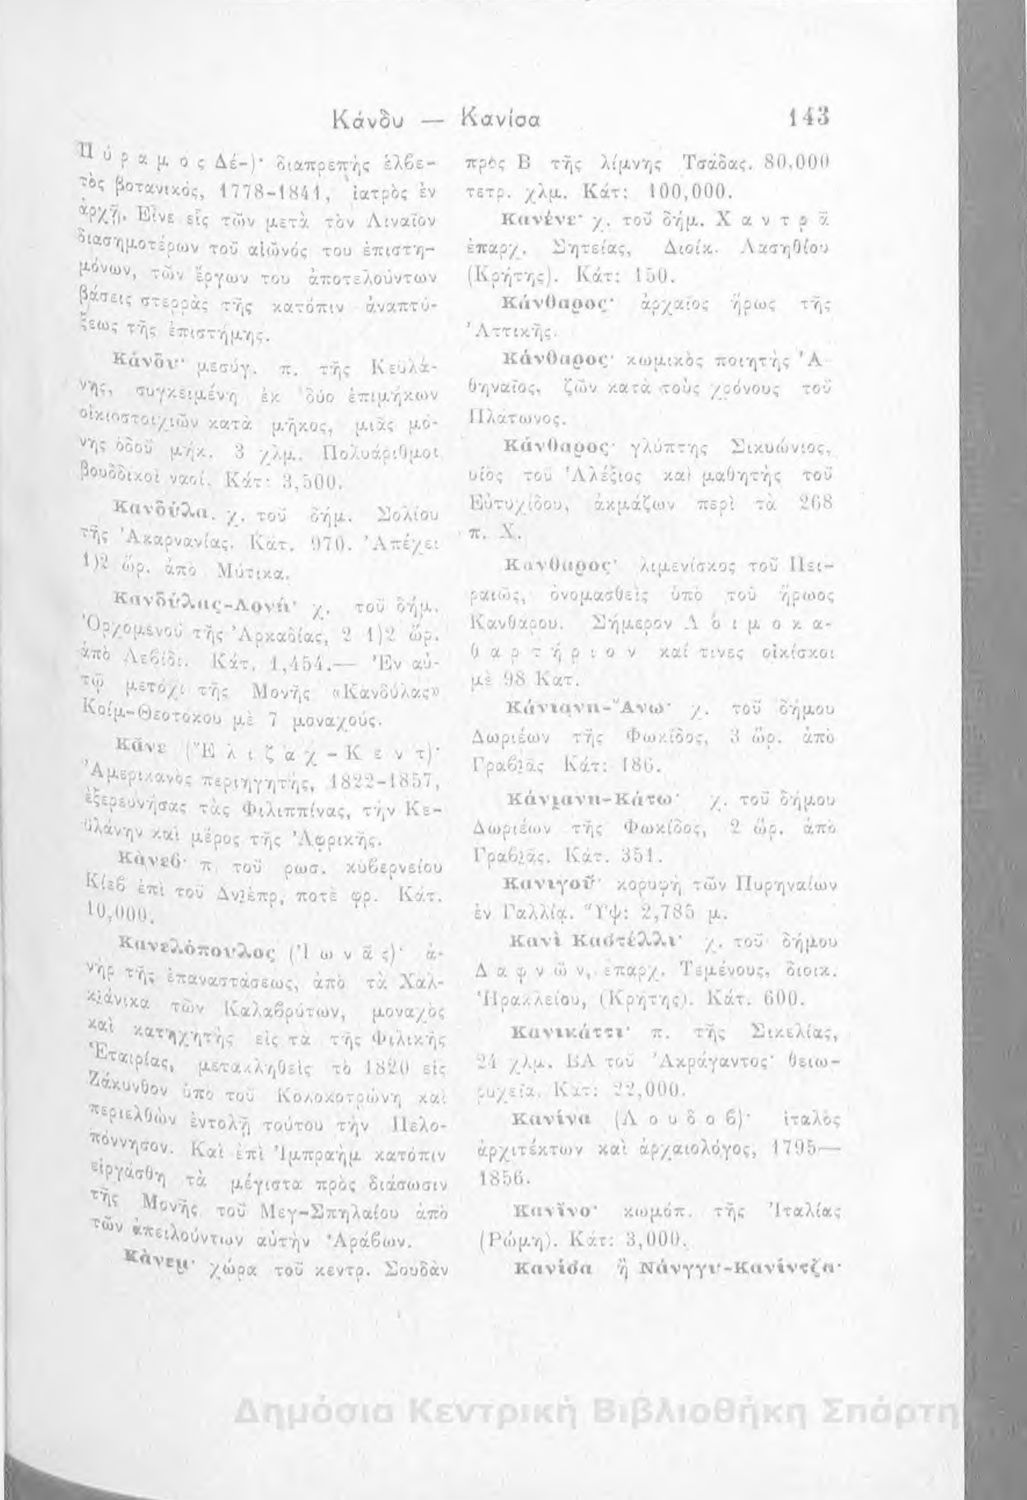 Κάνδυ — Κανίσα 143
Πύραμος Δέ-)· διαπρεπὴς ἑλβε-
τὸς βοτανικός, 1778-1841, ἰατρὸς ἐν
ἀρχῇ. Εἶνε εἷς τῶν μετὰ τὸν Λιναῖον
διασημοτέρων τοῦ αἰῶνός του ἐπιστη-
μόνων, τῶν ἔργων του ἀποτελούντων
βάσεις στερρὰς τῆς κατόπιν ἀναπτύ-
ξεως τῆς ἐπιστήμης.
Κάνδυ· μεσόγ. π. τῆς Κεϋλά-
νης, συγκειμένη ἐκ δύο ἐπιμήκων
οἰκιοστοιχιῶν κατὰ μῆκος, μιᾶς μό-
νης ὁδοῦ μήκ. 3 χλμ. Πολυάριθμοι
βουδδικοὶ ναοί. Κάτ: 3,500.
Κανδύλα. χ. τοῦ δήμ. Σολίου
τῆς Ἀκαρνανίας. Κάτ. 970. Ἀπέχει
1)2 ὥρ. ἀπὸ Μύτικα.
Κανδύλας-Λον· χ. τοῦ δήμ.
Ὀρχομενοῦ τῆς Ἀρκαδίας, 2 1)2 ὥρ.
ἀπὸ Λεβίδι. Κάτ. 1,454.— Ἐν αὐ-
τῷ μετόχι τῆς Μονῆς «Κανδύλας»
Κοίμ-Θεοτόκου μὲ 7 μοναχούς.
Κᾶνε (Ἐλιζαχ-Κεντ)·
Ἀμερικανὸς περιηγητής, 1822-1857,
ἐξερευνήσας τὰς Φιλιππίνας, τὴν Κε-
ϋλάνην καὶ μέρος τῆς Ἀφρικῆς.
Κάνεβ· π. τοῦ ρωσ. κυβερνείου
Κίεβ ἐπὶ τοῦ Δνιέπρ, ποτὲ φρ. Κάτ.
10,000.
Κανελόπουλος (Ἰωνᾶς)· ἀ-
νὴρ τῆς ἐπαναστάσεως, ἀπὸ τὰ Χαλ-
κιάνικα τῶν Καλαβρύτων, μοναχὸς
καὶ κατηχητὴς εἰς τὰ τῆς Φιλικῆς
Ἑταιρίας, μετακληθεὶς τὸ 1820 εἰς
Ζάκυνθον ὑπὸ τοῦ Κολοκοτρώνη καὶ
περιελθὼν ἐντολῇ τούτου τὴν Πελο-
πόννησον. Καὶ ἐπὶ Ἰμπραὴμ κατόπιν
εἰργάσθη τὰ μέγιστα πρὸς διάσωσιν
τῆς Μονῆς τοῦ Μεγ-Σπηλαίου ἀπὸ
τῶν ἀπειλούντων αὐτὴν Ἀράβων.
Κάνεμ· χώρα τοῦ κεντρ. Σουδὰν
πρὸς Β τῆς λίμνης Τσάδας. 80,000
τετρ. χλμ. Κάτ: 100,000.
Κανένε· χ. τοῦ δήμ. Χαντρᾶ
ἐπαρχ. Σητείας, Διοίκ. Λασηθίου
(Κρήτης). Κάτ: 150.
Κάνθαρος· ἀρχαῖος ἥρως τῆς
Ἀττικῆς.
Κάνθαρος· κωμικὸς ποιητὴς Ἀ
θηναῖος, ζῶν κατὰ τοὺς χρόνους τοῦ
Πλάτωνος.
Κάνθαρος· γλύπτης Σικυώνιος,
υἱὸς τοῦ Ἀλέξιος καὶ μαθητὴς τοῦ
Εὐτυχίδου, ἀκμάζων περὶ τὰ 268
π. Χ.
Κάνθαρος· λιμενίσκος τοῦ Πει-
ραιῶς, ὀνομασθεὶς ὑπὸ τοῦ ἥρωος
Κανθάρου. Σήμερον Λοιμοκα-
θαρτήριον καί τινες οἰκίσκοι
μὲ 98 Κατ.
Κάνιανη-Ἄνω· χ. τοῦ δήμου
Δωριέων τῆς Φωκίδος, 3 ὥρ. ἀπὸ
Γραβιᾶς Κάτ: 186.
Κάνιανη-Κάτω· χ. τοῦ δήμου
Δωριέων τῆς Φωκίδος, 2 ὥρ. ἀπὸ
Γραβιᾶς. Κάτ. 351.
Κανιγοῦ· κορυφὴ τῶν Πυρηναίων
ἐν Γαλλίᾳ. Ὕψ: 2,785 μ.
Κανὶ Καστέλλι· χ. τοῦ δήμου
Δαφνῶν, ἐπαρχ. Τεμένους, διοικ.
Ἡρακλείου, (Κρήτης). Κάτ. 600.
Κανικάττι· π. τῆς Σικελίας,
24 χλμ. ΒΑ τοῦ Ἀκράγαντος· θειω-
ρυχεῖα. Κάτ: 22,000.
Κανίνα (Λουδοβ)· ἰταλὸς
ἀρχιτέκτων καὶ ἀρχαιολόγος, 1795—
1856.
Κανῖνο· κωμόπ. τῆς Ἰταλίας
(Ρώμη). Κάτ: 3,000.
Κανίσα ἢ Νάνγγυ-Κανίντζα·
Δημόσια Κεντρική Βιβλιοθήκη Σπάρτη